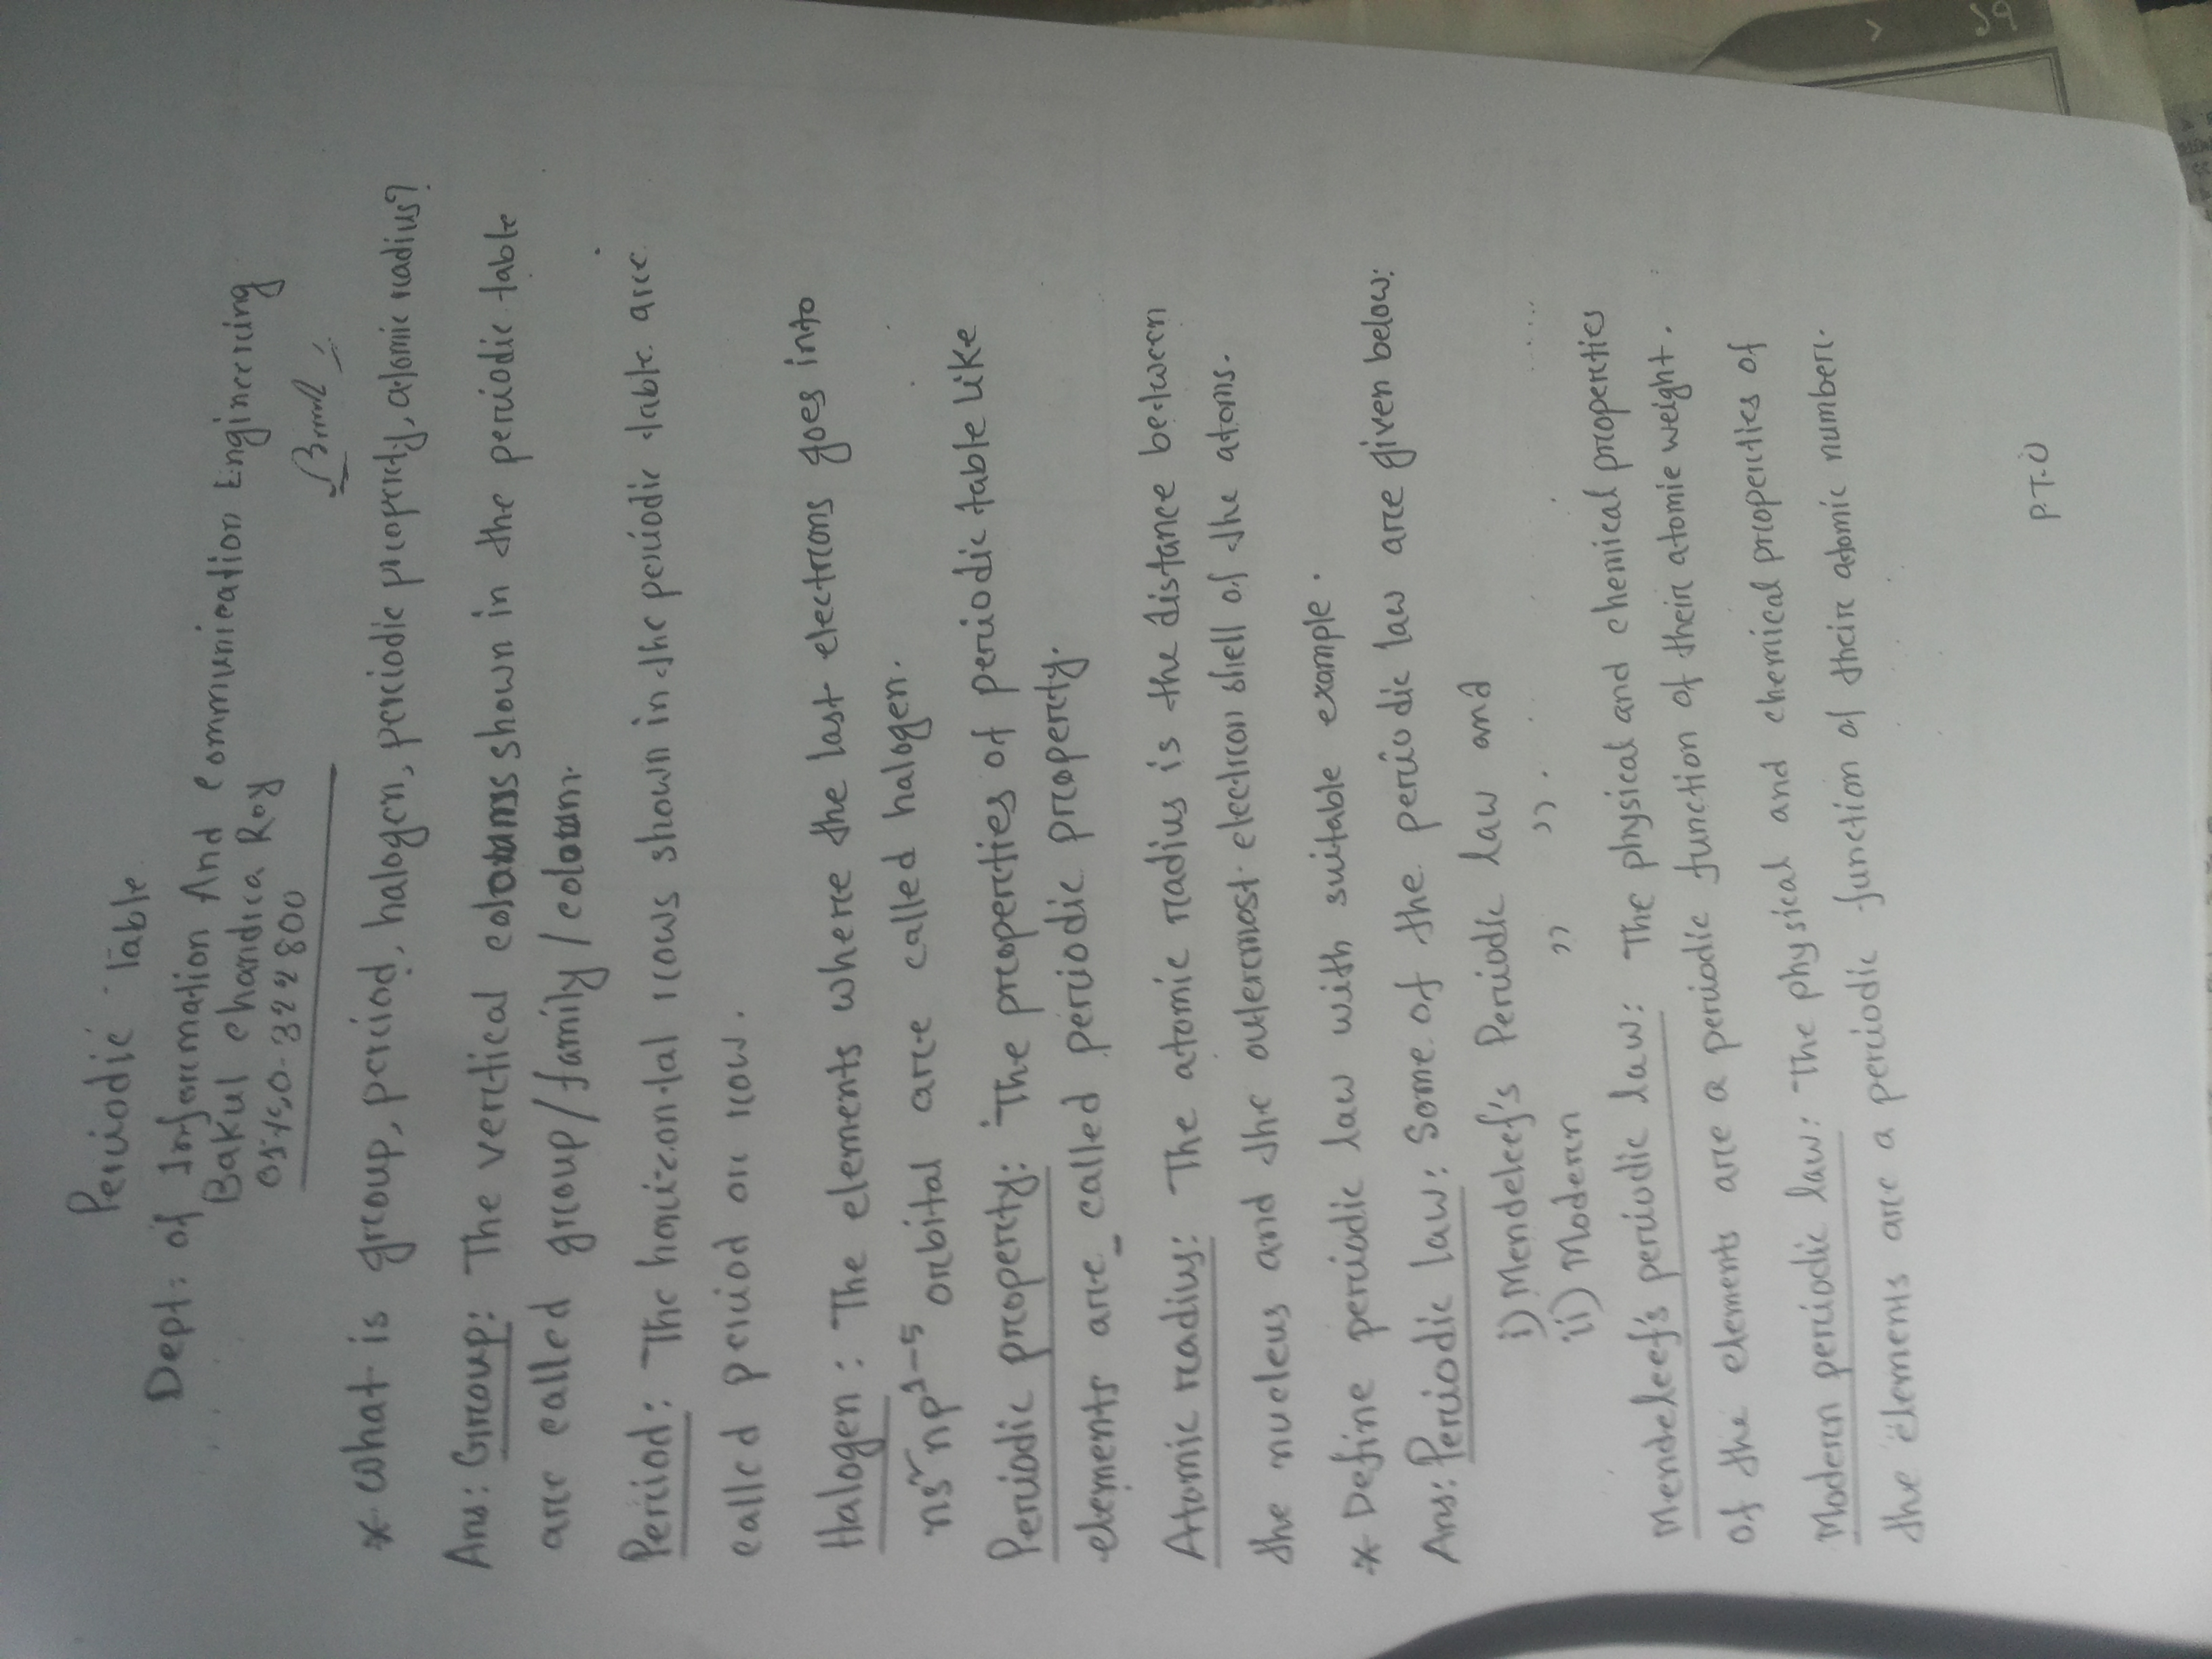 Periodic Table
Dept: of Information And Communication Engineering
Bakul Chandra Roy
322800
* What is group, period, halogen, periodic property, atomic radius?
Ans: Group: The vertical shown in the periodic table
are called group/family/
Period: The horizontal rows shown in the periodic table are
called period or row.
Halogen: The elements where the last electrons goes into
ns² np¹⁻⁵ orbital are called halogen.
Periodic property: The properties of periodic table like
elements are called periodic property.
Atomic radius: The atomic radius is the distance between
the nucleus and the outermost electron shell of the atoms.
* Define periodic law with suitable example.
Ans: Periodic law: Some of the periodic law are given below:
i) Mendeleef's Periodic law and
ii) Modern " ".
Mendeleef's periodic law: The physical and chemical properties
of the elements are a periodic function of their atomic weight.
Modern periodic law: The physical and chemical properties of
the elements are a periodic function of their atomic number.
P.T.O